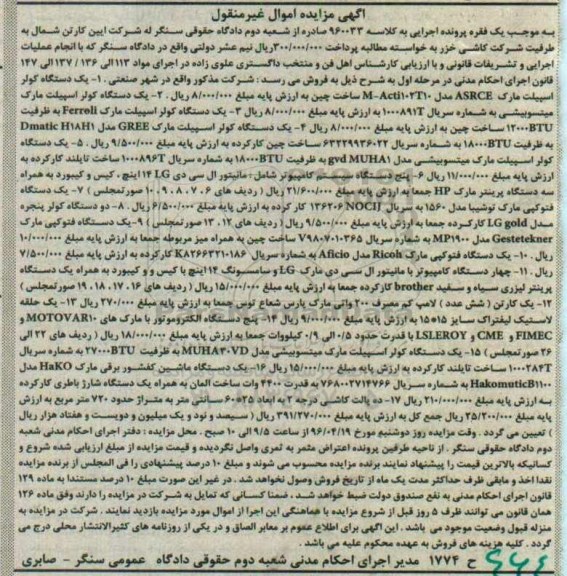 آگهی مزایده اموال غیرمنقول
به موجب یک فقره پرونده اجرایی به کلاسه ۹۶۰۰۳۳ صادره از شعبه دوم دادگاه حقوقی سنگر له شرکت ایین کارتن شمال به
ظرفیت شرکت کاشی خزر به خواسته مطالبه پرداخت ۳۰۰/۰۰۰/۰۰۰ریال نیم عشر دولتی واقع در دادگاه سنگر که با انجام عملیات
اجرایی و تشریفات قانونی و با ارزیابی کارشناس اهل فن و منتخب دادگستری علوی زاده در اجرای مواد 113الی ۱۳۶ / ۱۳۷الی ۱۴۷
قانون اجرای احکام مدنی در مرحله اول به شرح ذیل به فروش می رسد : شرکت مذکور واقع در شهر صنعتی . ۱- یک دستگاه کولر
اسپیلت مارک ASRCE مدل M-Acti۱۰۲T۱۰ ساخت چین به ارزش پایه مبلغ ۸/۰۰۰/۰۰۰ ریال . ۲- یک دستگاه کولر اسپیلت مارک
میتسوبیشی به شماره سریال ۱۰۰۰۸۹۱T به ارزش پایه مبلغ ۸/۰۰۰/۰۰۰ ریال ۳- یک دستگاه کولر اسپیلت مارک Ferroli به ظرفیت
۱۲۰۰۰BTU ساخت چین به ارزش پایه مبلغ ۸/۰۰۰/۰۰۰ ریال ۴- یک دستگاه کولر اسپیلت مارک GREE مدل Dmatic H۱AH۱
به ظرفیت ۱۸۰۰۰BTU به شماره سریال ۶۳۲۲۹۹۳۶۲۲ ساخت چین کارکرده به ارزش پایه مبلغ ۹/۵۰۰/۰۰۰ ریال . ۵- یک دستگاه
کولر اسپیلت مارک میتسوبیشی مدل gvd MUHA۱ به ظرفیت ۱۸۰۰۰BTU به شماره سریال ۱۰۰۰۸۹۶T ساخت تایلند کارکرده به
ارزش پایه مبلغ ۱۱/۰۰۰/۰۰۰ ریال ۶- پنج دستگاه سیستم کامپیوتر شامل : مانیتور ال سی دی LG ۱۴ اینچ ، کیس و کیبورد به همراه
سه دستگاه پرینتر مارک HP جمعا به ارزش پایه مبلغ ۲۱/۶۰۰/۰۰۰ ریال ( ردیف های ۶ ، ۷ ، ۸ ، ۹ ، ۱۰ صورتمجلس ) ۷- یک دستگاه
فتوکپی مارک توشیبا مدل ۱۵۶۰ به سریال NOCIJ ۱۳۶۲۰۶ کار کرده به ارزش پایه مبلغ ۶/۵۰۰/۰۰۰ ریال . ۸- دو دستگاه کولر پنجره
مدل LG gold کارکرده جمعا به ارزش پایه مبلغ ۹/۵۰۰/۰۰۰ ریال ( ردیف های ۱۲ ، ۱۳ صورتمجلس ) ۹-یک دستگاه فتوکپی مارک
Gestetekner مدل MP۱۹۰۰ به شماره سریال V۹۸۰۷۰۱۰۳۶۵ ساخت چین به همراه میز مربوطه جمعا به ارزش پایه مبلغ ۱۰/۰۰۰/۰۰۰
ریال . ۱۰- یک دستگاه فتوکپی مارک Ricoh مدل Aficio به شماره سریال K۸۲۶۶۳۲۱۰۱۸۶ کارکرده به ارزش پایه مبلغ ۷/۵۰۰/۰۰۰
ریال . ۱۱- چهار دستگاه کامپیوتر با مانیتور ال سی دی مارک LG و سامسونگ ۱۴ اینچ با کیس و و کیبورد به همراه یک دستگاه
پرینتر لیزری سیاه و سفید brother کارکرده جمعا به ارزش پایه مبلغ ۱۵/۰۰۰/۰۰۰ ریال ( ردیف های ۱۶ ، ۱۷ ، ۱۸ ، ۱۹ صورتمجلس )
۱۲- یک کارتن ( شش عدد ) لامپ کم مصرف ۲۰۰واتی مارک پارس شعاع توس جمعا به ارزش پایه مبلغ ۲۷۰/۰۰۰ ریال ۱۳- یک حلقه
لاستیک لیفتراک سایز ۱۵×۱۵ به ارزش پایه مبلغ ۹/۰۰۰/۰۰۰ ریال ۱۴- پنج دستگاه الکتروموتور با مارک های MOTOVAR۱۰ و
FIMEC و CME و LSLEROY با قدرت حدود ۰/۵ الی ۰/۹ کیلووات جمعا به ارزش پایه مبلغ ۱۸/۰۰۰/۰۰۰ ریال ( ردیف های ۲۲ الی
۲۶ صورتمجلس ) ۱۵- یک دستگاه کولر اسپیلت مارک میتسوبیشی مدل MUHA۳۰VD به ظرفیت ۲۷۰۰۰BTU به شماره سریال
۱۰۰۰۲۸۴T ساخت تایلند کارکرده به ارزش پایه مبلغ ۱۵/۰۰۰/۰۰۰ ریال ۱۶- یک دستگاه ماشین کفشور برقی مارک HaKO مدل
HakomuticB۱۱۰۰ به شماره سریال ۷۶۸۰۰۲۷۱۴۷۶۶ به قدرت ۴۴۰۰ وات ساخت المان به همراه یک دستگاه شارژ باطری کارکرده
به ارزش پایه مبلغ ۲۱۰/۰۰۰/۰۰۰ ریال ۱۷- ده پالت کاشی درجه ۲ به ابعاد ۲۵×۶۰ سانتی متر به متراژ حدود ۷۲۰ متر مربع به ارزش
پایه مبلغ ۲۵/۲۰۰/۰۰۰ ریال جمع کل به ارزش پایه مبلغ ۳۹۱/۲۷۰/۰۰۰ ریال ( سیصد و نود و یک میلیون و دویست و هفتاد هزار ریال
) تعیین می گردد . وقت مزایده روز دوشنبه مورخ ۹۶/۰۴/۱۹ از ساعت ۹/۵ الی ۱۰ صبح . محل مزایده : دفتر اجرای احکام مدنی شعبه
دوم دادگاه حقوقی سنگر . از ناحیه طرفین پرونده اعتراض مثمر به ثمری واصل نگردیده و قیمت مزایده از مبلغ ارزیابی شده شروع و
کسانیکه بالاترین قیمت را پیشنهاد نمایند برنده مزایده محسوب می شوند و مبلغ ۱۰ درصد پیشنهادی را فی المجلس از برنده مزایده
نقدا اخذ و مابقی ظرف حداکثر مدت یک ماه از تاریخ فروش وصول نخواهد شد . در غیر این صورت مبلغ ۱۰ درصد مستندا به ماده ۱۲۹
قانون اجرای احکام مدنی به نفع صندوق دولت ضبط خواهد شد . ضمنا کسانی که تمایل به شرکت در مزایده را دارند وفق ماده ۱۲۶
همان قانون می توانند ظرف ۵ روز قبل از شروع مزایده با هماهنگی این اجرا از اموال مورد مزایده بازدید نمایند . شرکت در مزایده به
منزله قبول وضعیت موجود می باشد . این آگهی برای اطلاع عموم بر معابر الصاق و در یکی از روزنامه های کثیرالانتشار محلی درج می
گردد . کلیه هزینه های فروش به عهده محکوم علیه می باشد .
ح ۱۷۷۴ مدیر اجرای احکام مدنی شعبه دوم حقوقی دادگاه عمومی سنگر - صابری